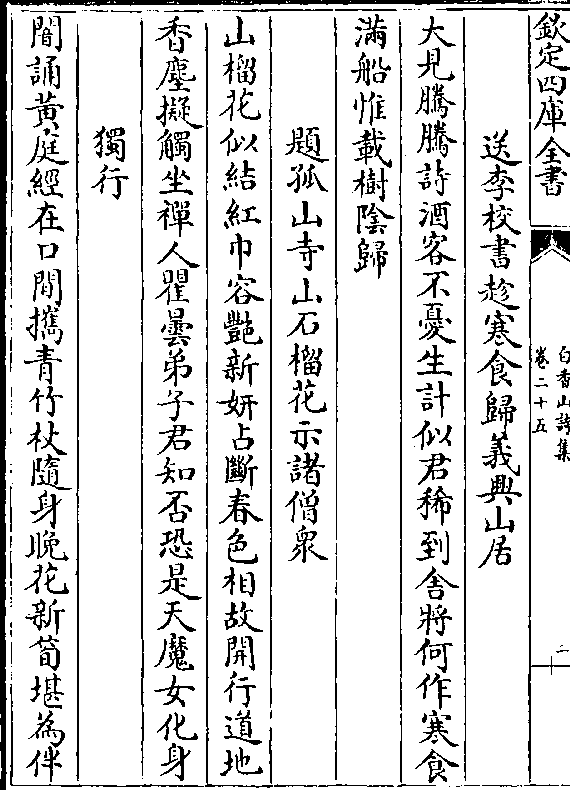 欽定四庫全書
白香山詩集
卷二十五
二
送李校書趂寒食歸義興山居
大見騰騰詩酒客不憂生計似君稀到舍將何作寒食
滿船惟載樹陰歸
題孤山寺山石榴花示諸僧衆
山榴花似結紅巾容艷新妍占斷春色相故開行道地
香塵擬觸坐禪人瞿曇弟子君知否恐是天魔女化身
獨行
闇誦黃庭經在口閒攜青竹杖隨身晚花新筍堪為伴